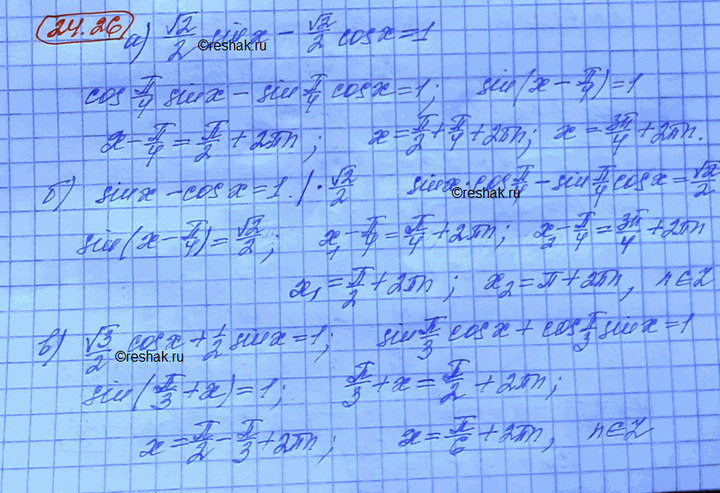 24.26
а) √2/2 sin x − √2/2 cos x = 1
cos π/4 sin x − sin π/4 cos x = 1; sin(x − π/4) = 1
x − π/4 = π/2 + 2πn; x = π/2 + π/4 + 2πn; x = 3π/4 + 2πn.
б) sin x − cos x = 1. | · √2/2 sin x · cos π/4 − sin π/4 cos x = √2/2
sin(x − π/4) = √2/2; x₁ − π/4 = π/4 + 2πn; x₂ − π/4 = 3π/4 + 2πn
x₁ = π/2 + 2πn; x₂ = π + 2πn, n∈Z
в) √3/2 cos x + 1/2 sin x = 1; sin π/3 cos x + cos π/3 sin x = 1
sin(π/3 + x) = 1; π/3 + x = π/2 + 2πn;
x = π/2 − π/3 + 2πn; x = π/6 + 2πn, n∈Z
©reshak.ru
©reshak.ru
©reshak.ru